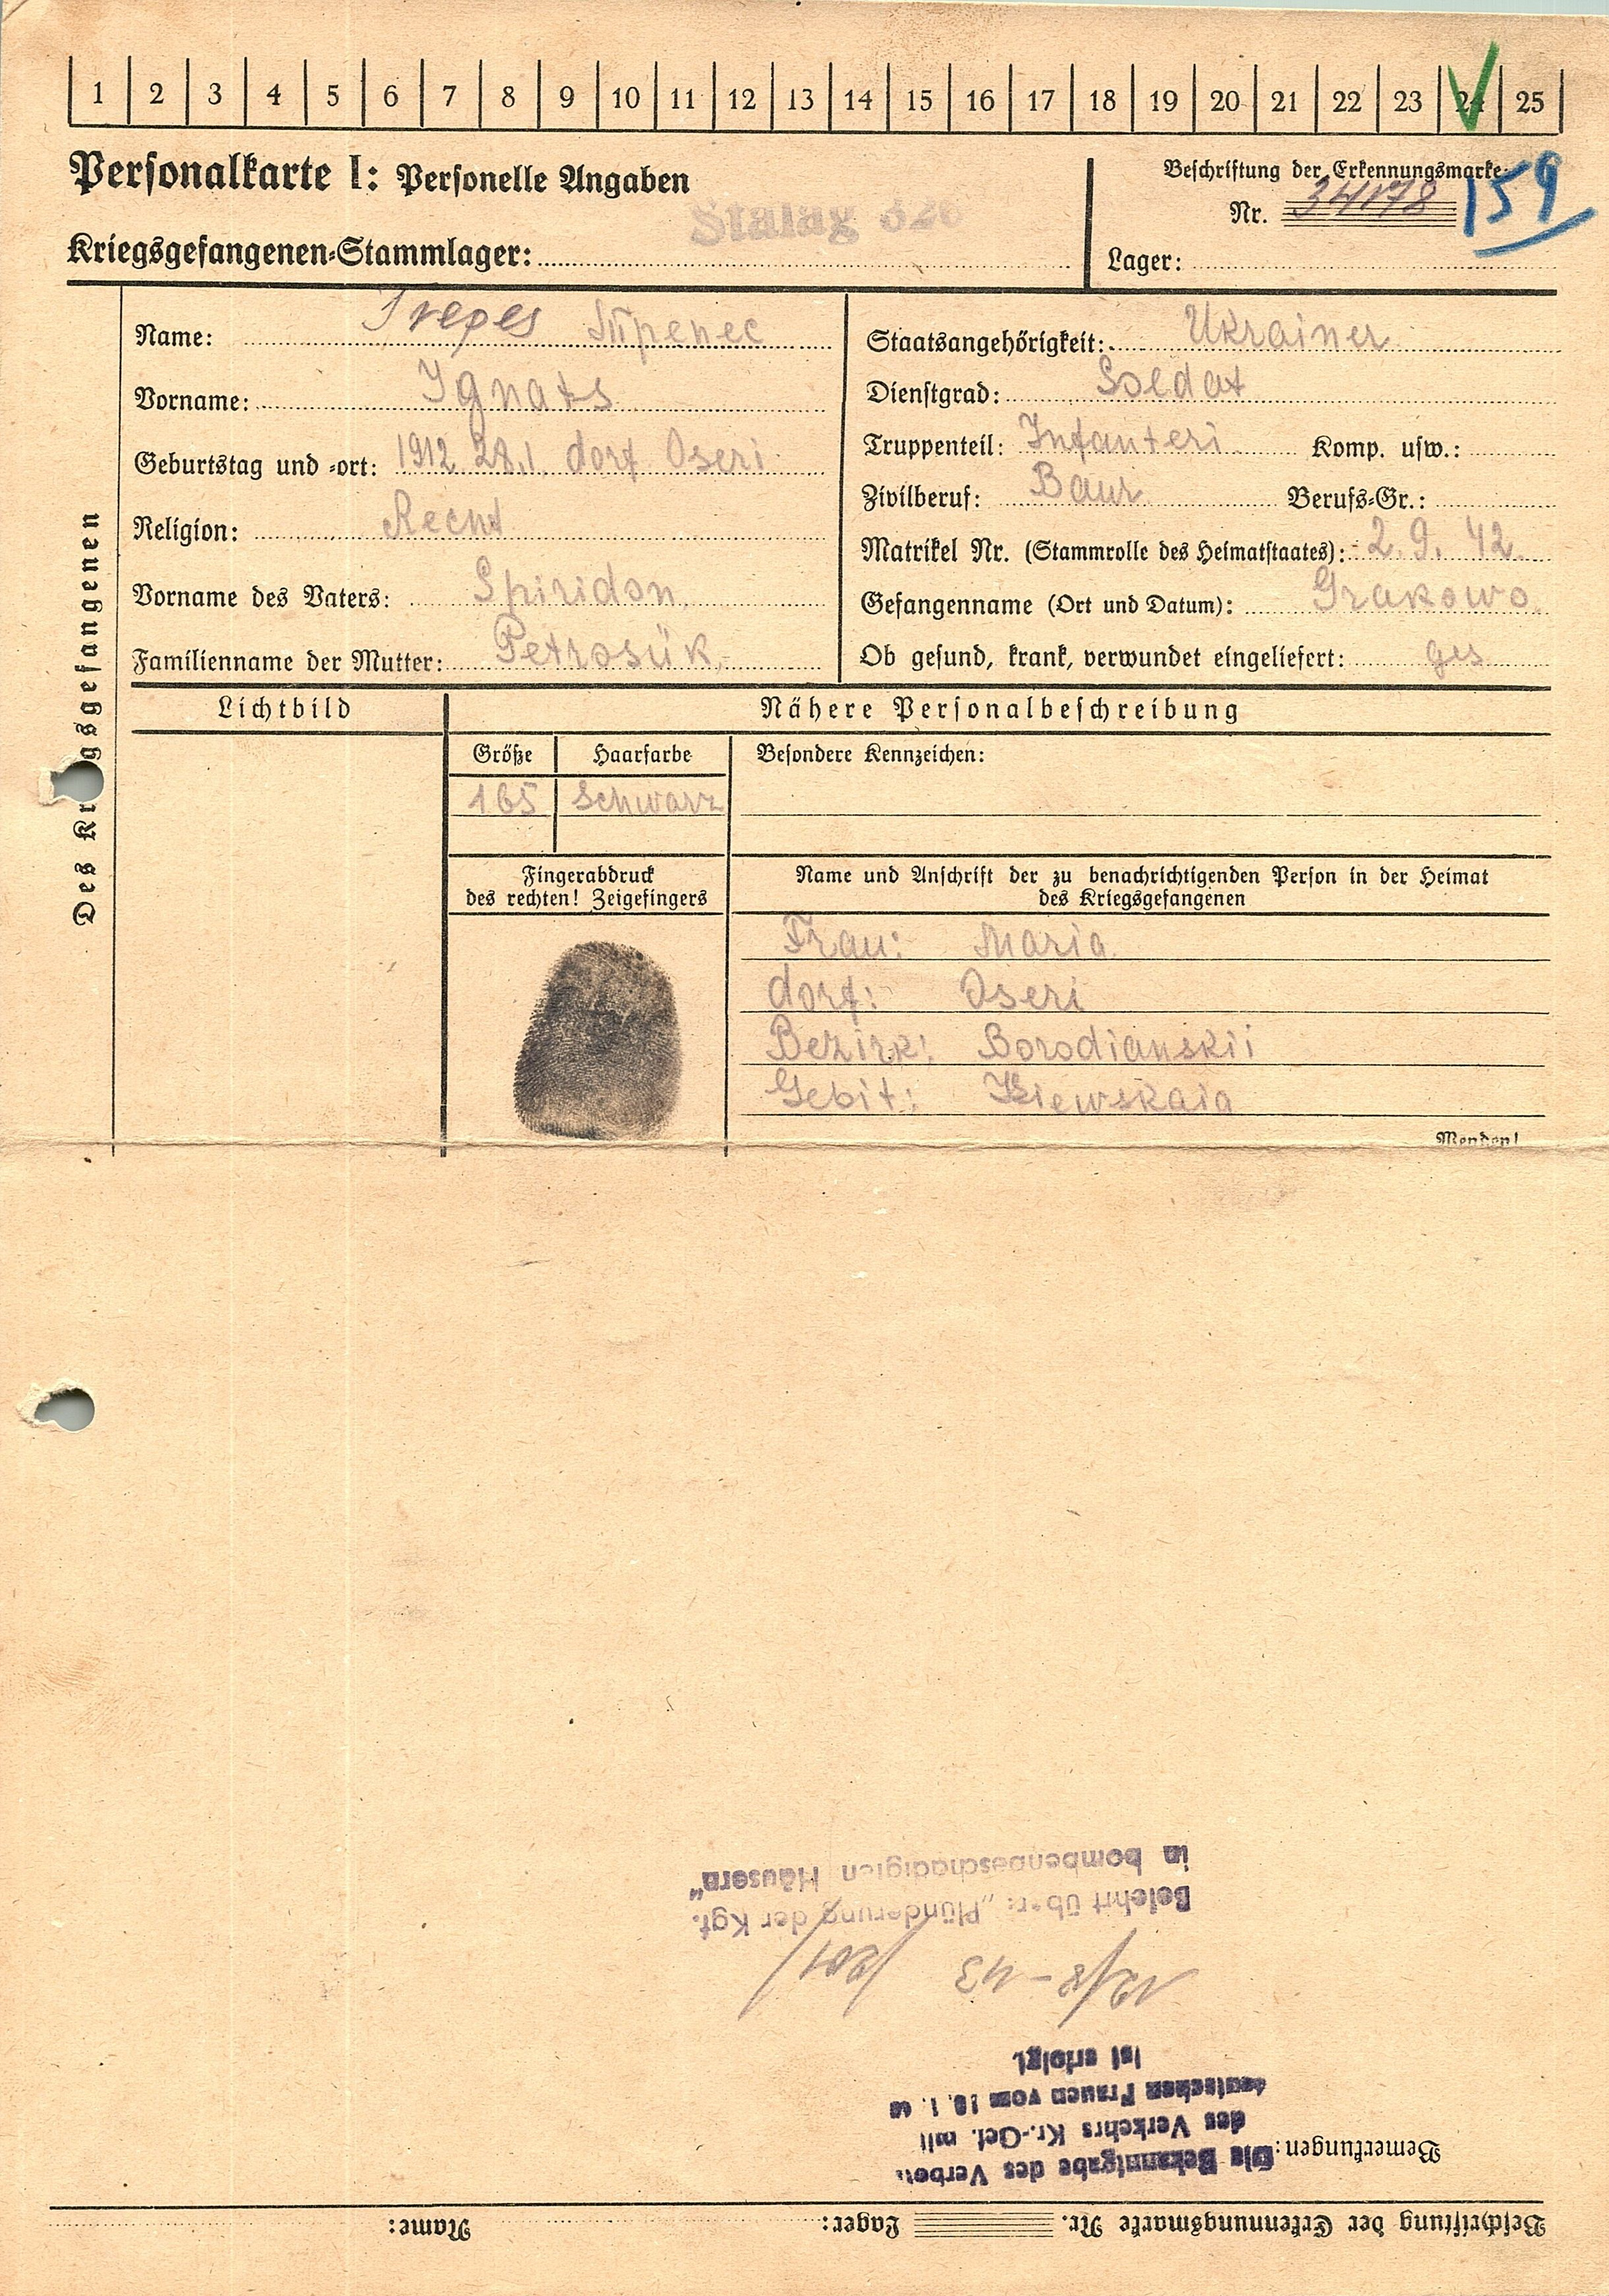 1 2 3 4 5 6 7 8 9 10 11 12 13 14 15 16 17 18 19 20 21 22 23 24 25
Personalkarte I: Personelle Angaben
Kriegsgefangenen-Stammlager: Stalag 326
Beschriftung der Erkennungsmarke
Nr. 34178 159
Lager:
Des Kr gsgefangenen
Name:
Vorname: Ignats
Geburtstag und -ort: 1912 28.1 dorf Oseri
Religion: Recht
Vorname des Vaters: Spiridon
Familienname der Mutter: Petrosük
Staatsangehörigkeit: Ukrainer
Dienstgrad: Soldat
Truppenteil: Infanteri Komp. usw.:
Zivilberuf: Baur Berufs-Gr.:
Matrikel Nr. (Stammrolle des Heimatstaates): 2. 9. 42
Gefangenname (Ort und Datum): Grakowo
Ob gesund, krank, verwundet eingeliefert: ges
Lichtbild
Nähere Personalbeschreibung
Größe Haarfarbe Besondere Kennzeichen:
165 Schwarz
Fingerabdruck
des rechten! Zeigefingers
Name und Anschrift der zu benachrichtigenden Person in der Heimat
des Kriegsgefangenen
Frau: Maria
dorf: Oseri
Bezirk: Borodianskii
Gebit: Kiewskaia
Wenden!
Beschriftung der Erkennungsmarke Nr. Lager: Name:
Bemerkungen:
Die Bekanntgabe des Verbot.
des Verkehrs Kr.-Gef. mit
deutschen Frauen vom 10. 1. 40
ist erfolgt.
12/8 - 43 /201/
Belehrt über: „Plünderung der Kgf.
in bombenbeschädigten Häusern"